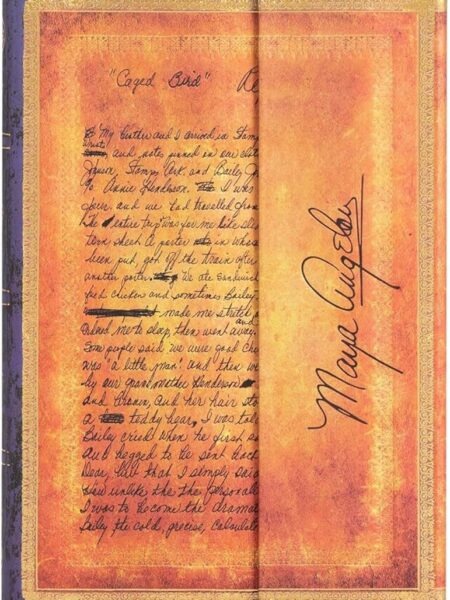 "Caged Bird" Re
My brother and I arrived in Stam
and notes pinned in our
Stamps Ark. and Bailey J
To Annie Henderson. I was
and we had travelled from
The entire trip was for me like
sheet A porter in whose
been put, got off the train after
another porter. We ate sandwich
fried chicken and sometimes Bailey
made me stretch
me to sleep then went away. and
Some people said we were good ch
was "a little man" and then we
by our grandmother Henderson
and brown, and her hair sto
a teddy bear, I was told
Bailey cried when he first s
and begged to be sent back
that I simply said
How unlike the the personal
I was to become the dramat
Bailey the cold, precise, calculat
Maya Angelou